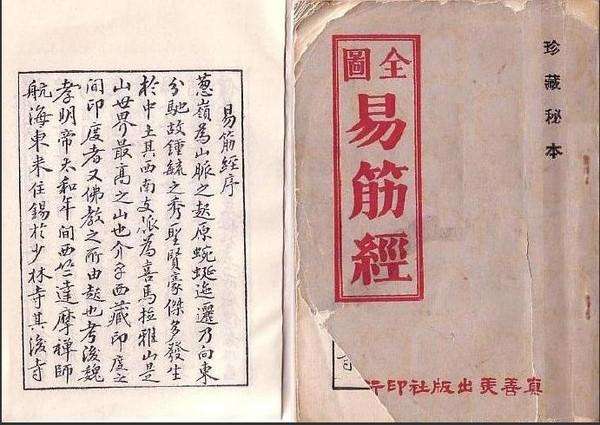 珍藏秘本
全圖
易筋經
真善美出版社印行
易筋經序
葱嶺為山脈之起原蜿蜒迤邐乃向東
分馳故鍾毓之秀聖賢豪傑多發生
於中土其西南支派為喜馬拉雅山是
山世界最高之山也介乎西藏印度之
間印度者又佛教之所由起也考後魏
孝明帝太和年間西竺達摩禪師
航海東来住錫於少林寺其後寺